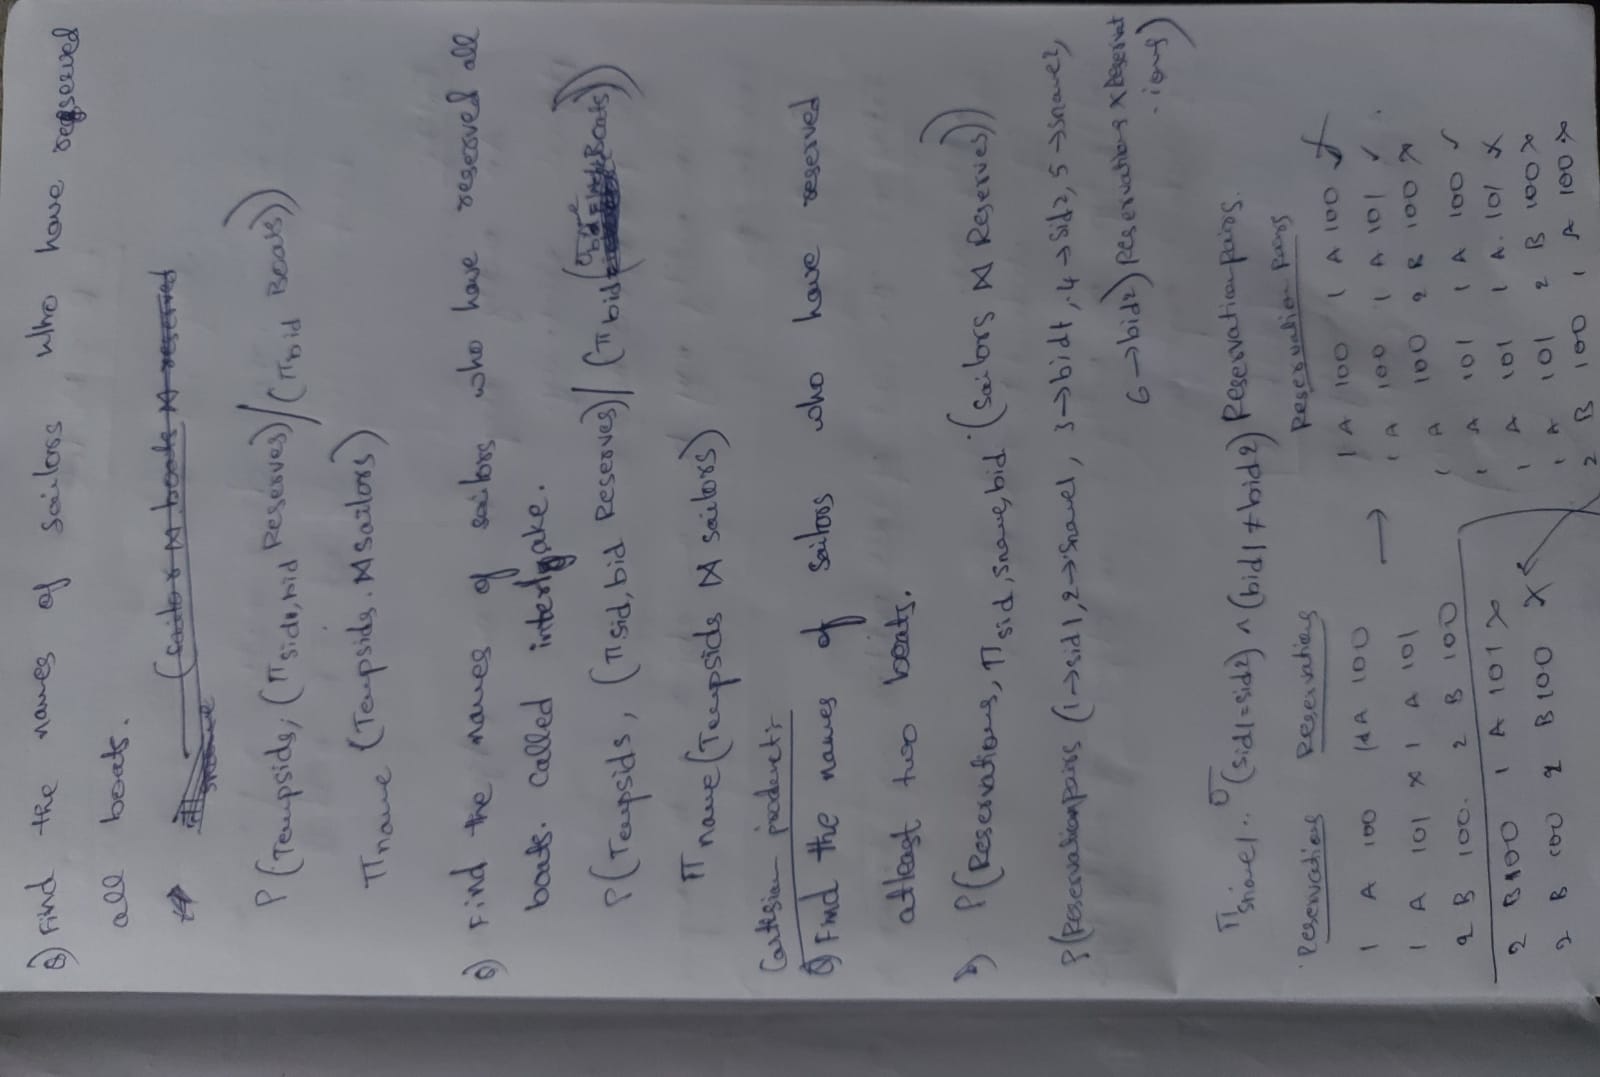 Q) Find the names of sailors who have reserved
all boats.
(Sailor ⋈ boats ⋈ reserved
ρ(Tempsids, (π sid, bid Reserves)/(π bid Boats))
π name (Tempsids. ⋈ sailors)
Q) Find the names of sailors who have reserved all
boats. called interlake.
ρ(Tempsids, (π sid, bid Reserves)/(π bid ( Boats))
π name (Tempsids ⋈ sailors)
Cartesian product:
Q) Find the names of sailors who have reserved
atleast two boats.
ρ(Reservations, π sid, sname, bid (Sailors ⋈ Reserves))
ρ(Reservationpairs (1→sid1, 2→sname1, 3→bid1, 4→sid2, 5→sname2,
6→bid2) Reservations × Reservat
ions)
π sname1 σ (sid1=sid2) ∧ (bid1≠bid2) Reservationpairs.
Reservations Reservations Reservation Pairs
1 A 100 1 A 100 → 1 A 100 1 A 100 ✗
1 A 101 × 1 A 101 1 A 100 1 A 101 ✓
2 B 100. 2 B 100 1 A 100 2 B 100 ✗
1 A 101 1 A 100 ✓
2 B 100 1 A 101 ✗ 1 A 101 1 A. 101 ✗
2 B 100 2 B 100 ✗ 1 A 101 2 B 100 ✗
2 B 100 1 A 100 ✗